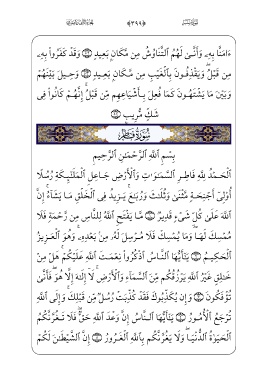 ﴿٣٩٩﴾
ءَامَنَّا بِهِۦ وَأَنَّىٰ لَهُمُ ٱلتَّنَاوُشُ مِن مَّكَانٍۭ بَعِيدٍ ۝٥٢ وَقَدْ كَفَرُوا۟ بِهِۦ
مِن قَبْلُ ۖ وَيَقْذِفُونَ بِٱلْغَيْبِ مِن مَّكَانٍۭ بَعِيدٍ ۝٥٣ وَحِيلَ بَيْنَهُمْ
وَبَيْنَ مَا يَشْتَهُونَ كَمَا فُعِلَ بِأَشْيَاعِهِم مِّن قَبْلُ ۚ إِنَّهُمْ كَانُوا۟ فِى
شَكٍّ مُّرِيبٍۭ ۝٥٤
سُورَةُ فَاطِرٍ
بِسْمِ ٱللَّهِ ٱلرَّحْمَٰنِ ٱلرَّحِيمِ
ٱلْحَمْدُ لِلَّهِ فَاطِرِ ٱلسَّمَٰوَٰتِ وَٱلْأَرْضِ جَاعِلِ ٱلْمَلَٰٓئِكَةِ رُسُلًا
أُو۟لِىٓ أَجْنِحَةٍ مَّثْنَىٰ وَثُلَٰثَ وَرُبَٰعَ ۚ يَزِيدُ فِى ٱلْخَلْقِ مَا يَشَآءُ ۚ إِنَّ
ٱللَّهَ عَلَىٰ كُلِّ شَىْءٍ قَدِيرٌ ۝١ مَّا يَفْتَحِ ٱللَّهُ لِلنَّاسِ مِن رَّحْمَةٍ فَلَا
مُمْسِكَ لَهَا ۖ وَمَا يُمْسِكْ فَلَا مُرْسِلَ لَهُۥ مِنۢ بَعْدِهِۦ ۚ وَهُوَ ٱلْعَزِيزُ
ٱلْحَكِيمُ ۝٢ يَٰٓأَيُّهَا ٱلنَّاسُ ٱذْكُرُوا۟ نِعْمَتَ ٱللَّهِ عَلَيْكُمْ ۚ هَلْ مِنْ
خَٰلِقٍ غَيْرُ ٱللَّهِ يَرْزُقُكُم مِّنَ ٱلسَّمَآءِ وَٱلْأَرْضِ ۚ لَآ إِلَٰهَ إِلَّا هُوَ ۖ فَأَنَّىٰ
تُؤْفَكُونَ ۝٣ وَإِن يُكَذِّبُوكَ فَقَدْ كُذِّبَتْ رُسُلٌ مِّن قَبْلِكَ ۚ وَإِلَى ٱللَّهِ
تُرْجَعُ ٱلْأُمُورُ ۝٤ يَٰٓأَيُّهَا ٱلنَّاسُ إِنَّ وَعْدَ ٱللَّهِ حَقٌّ ۖ فَلَا تَغُرَّنَّكُمُ
ٱلْحَيَوٰةُ ٱلدُّنْيَا ۖ وَلَا يَغُرَّنَّكُم بِٱللَّهِ ٱلْغَرُورُ ۝٥ إِنَّ ٱلشَّيْطَٰنَ لَكُمْ